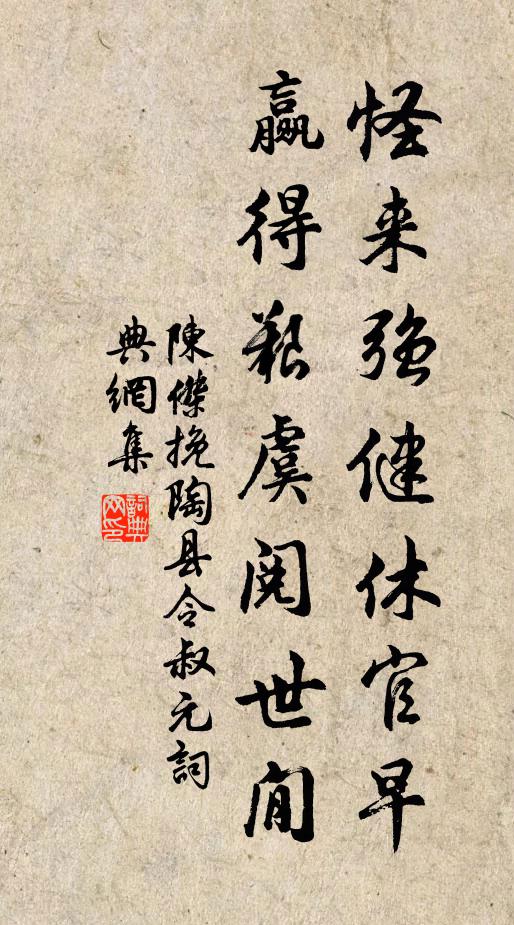 怪来强健休官早
赢得艱虞阅世闲
陳傑挽陶县令叔元詞
典網集
詞典
网印